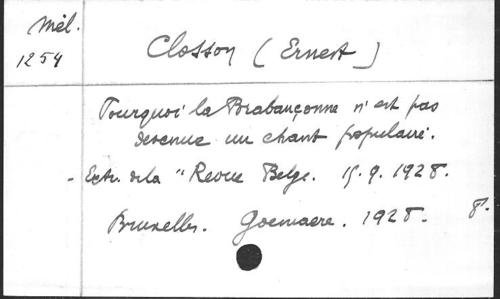 Mél.
1254
Closson (Ernest)
Pourquoi la Brabançonne n'est pas
devenue un chant populaire.
- Extr. de la "Revue Belge. 15.9.1928.
Bruxelles. Goemaere. 1928. 8°.